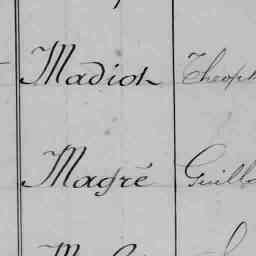 Madiot Théoph
Magré Guill